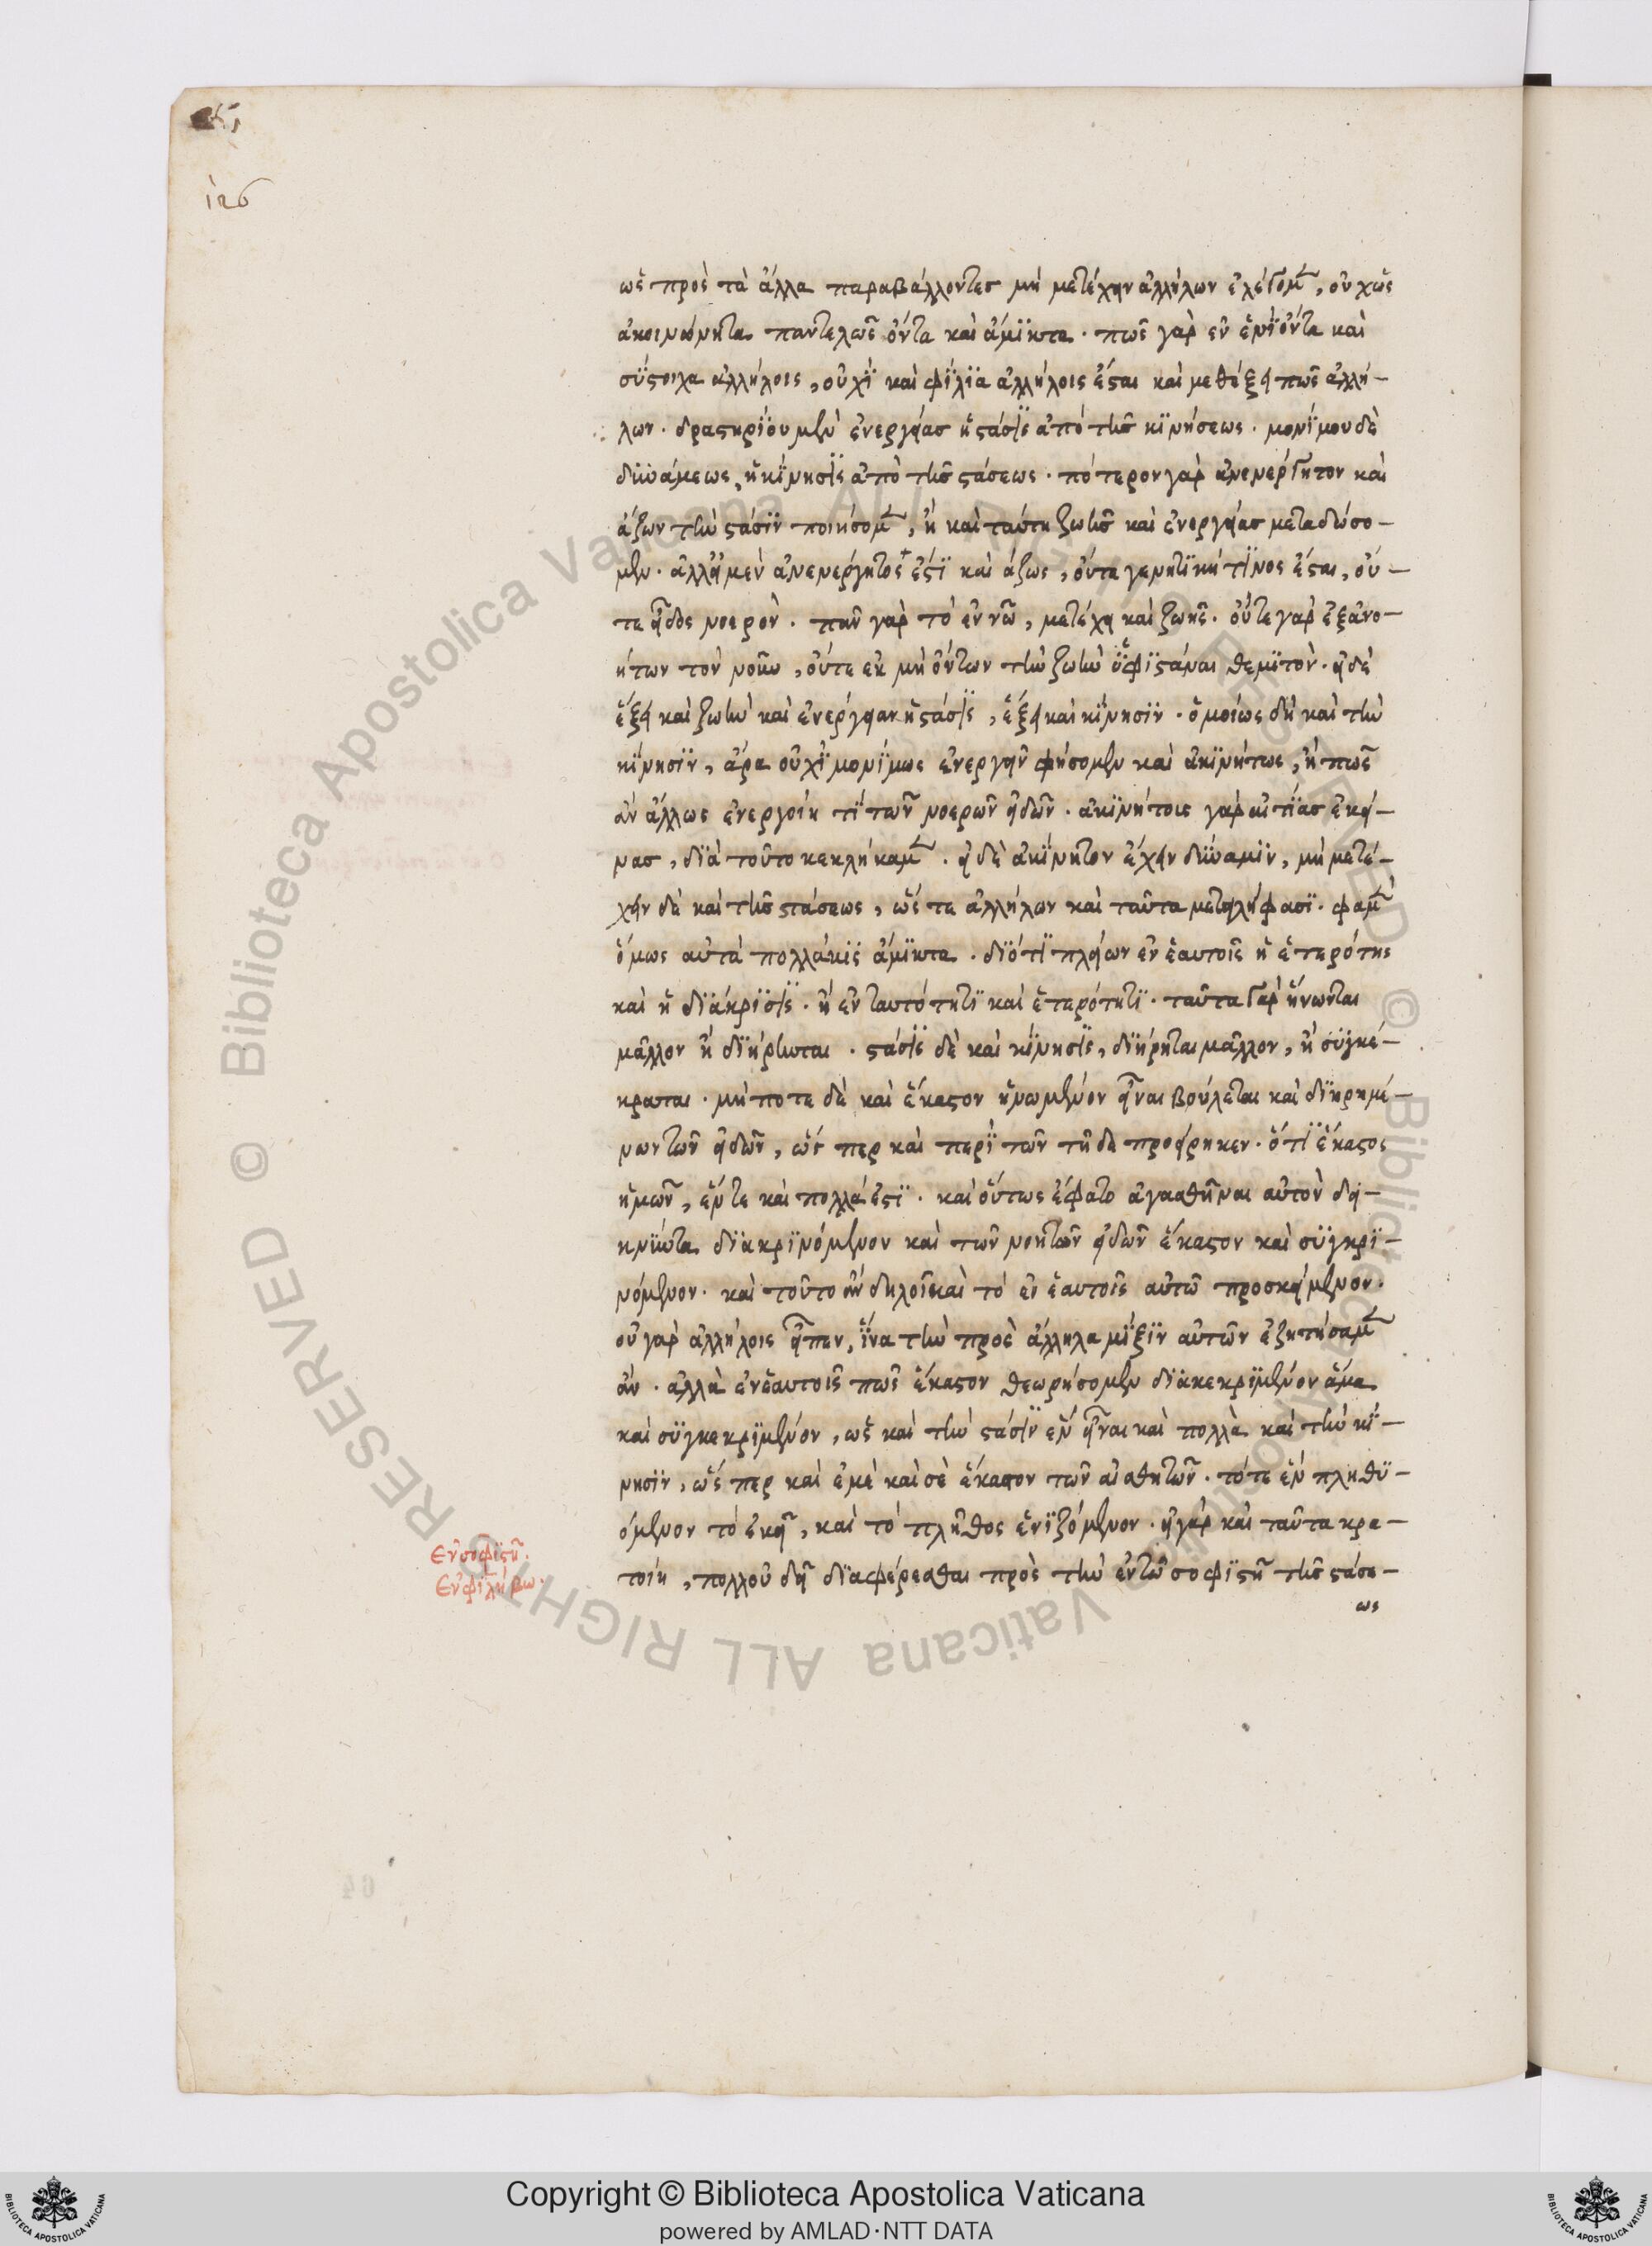 ὡς πρὸς τὰ ἄλλα παραβάλλοντες μὴ μετέχειν ἀλλήλων ἐλέγομεν, οὐχ ὡς
ἀκοινώνητα παντελῶς ὄντα καὶ ἄμϊκτα. πῶς γὰρ ἐν ἑνὶ ὄντα καὶ
σύστοιχα ἀλλήλοις, οὐχὶ καὶ φίλια ἀλλήλοις ἔσται καὶ μεθέξει πως ἀλλή-
λων. δραστηρίου μὲν ἐνεργείας ἡ στάσις ἀπὸ τῆς κινήσεως. μονίμου δὲ
δυνάμεως, ἡ κίνησις ἀπὸ τῆς στάσεως. πότερον γὰρ ἀνενέργητον καὶ
ἄζων τὴν στάσιν ποιήσομεν, ἢ καὶ ταύτη ζωῆς καὶ ἐνεργείας μεταδώσο-
μεν. ἀλλ' εἰ μὲν ἀνενέργητός ἐστι καὶ ἄζως, οὔτε γεννητικὴ τινος ἔσται, οὔ-
τε εἶδος νοερόν. πᾶν γὰρ τὸ ἐν νῷ, μετέχει καὶ ζωῆς. οὔτε γὰρ ἐξ ἀνο-
ήτων τὸν νοῦν, οὔτε ἐκ μὴ ὄντων τὴν ζωὴν ὑφιστάναι θεμιτόν. εἰ δὲ
ἕξει καὶ ζωὴν καὶ ἐνέργειαν ἡ στάσις, ἕξει καὶ κίνησιν. ὁμοίως δὴ καὶ τὴν
κίνησιν, ἆρα οὐχὶ μονίμως ἐνεργεῖν φήσομεν καὶ ἀκινήτως, ἢ πῶς
ἂν ἄλλως ἐνεργοίη τι τῶν νοερῶν εἰδῶν. ἀκινήτοις γὰρ αἰτίας ἐκεί-
νας, διὰ τοῦτο κεκλήκαμεν. εἰ δὲ ἀκίνητον ἔχειν δύναμιν, μὴ μετέ-
χειν δὲ καὶ τῆς στάσεως, ὥστε ἀλλήλων καὶ ταῦτα μετειλήφασι. φαμὲν
ὅμως αὐτὰ πολλάκις ἄμικτα. διότι πλείων ἐν ἑαυτοῖς ἡ ἑτερότης
καὶ ἡ διάκρισις. ἢ ἐν ταυτότητι καὶ ἑτερότητι. ταῦτα γὰρ ἥνωνται
μᾶλλον ἢ διῄρηνται. στάσις δὲ καὶ κίνησις, διῄρηται μᾶλλον, ἢ συγκέ-
κραται. μήποτε δὲ καὶ ἕκαστον ἡνωμένον εἶναι βούλεται καὶ διῃρημέ-
νων τῶν εἰδῶν, ὥσπερ καὶ περὶ τῶν τῇδε προείρηκεν. ὅτι ἕκαστος
ἡμῶν, ἕν τε καὶ πολλά ἐστι. καὶ οὕτως ἔφατο ἀγασθῆναι αὐτὸν δει-
κνύντα διακρινόμενον καὶ τῶν νοητῶν εἰδῶν ἕκαστον καὶ συγκρι-
νόμενον. καὶ τοῦτο ἂν δηλοῖ καὶ τὸ ἐν ἑαυτοῖς αὐτῷ προσκείμενον.
οὐ γὰρ ἀλλήλοις εἶπεν, ἵνα τὴν πρὸς ἄλληλα μῖξιν αὐτῶν ἐζητήσαμεν
ἄν. ἀλλὰ ἐν ἑαυτοῖς πῶς ἕκαστον θεωρήσομεν διακεκριμένον ἅμα
καὶ συγκεκριμένον, ὡς καὶ τὴν στάσιν ἓν εἶναι καὶ πολλὰ καὶ τὴν κί-
νησιν, ὥσπερ καὶ ἐμὲ καὶ σὲ ἕκαστον τῶν αἰσθητῶν. τό τε ἓν πληθυ-
όμενον τὸ ἐκεῖ, καὶ τὸ πλῆθος ἑνιζόμενον. εἰ γὰρ καὶ ταῦτα κρα-
τοίη, πολλοῦ δεῖ διαφέρεσθαι πρὸς τὴν ἐν τῷ σοφιστῇ τῆς στάσε-
ως
Ἐν σοφιστῇ.
Ἐν φιλήβω.
64
Copyright © Biblioteca Apostolica Vaticana
powered by AMLAD·NTT DATA
© Biblioteca Apostolica Vaticana ALL RIGHTS RESERVED
© Biblioteca Apostolica Vaticana ALL RIGHTS RESERVED